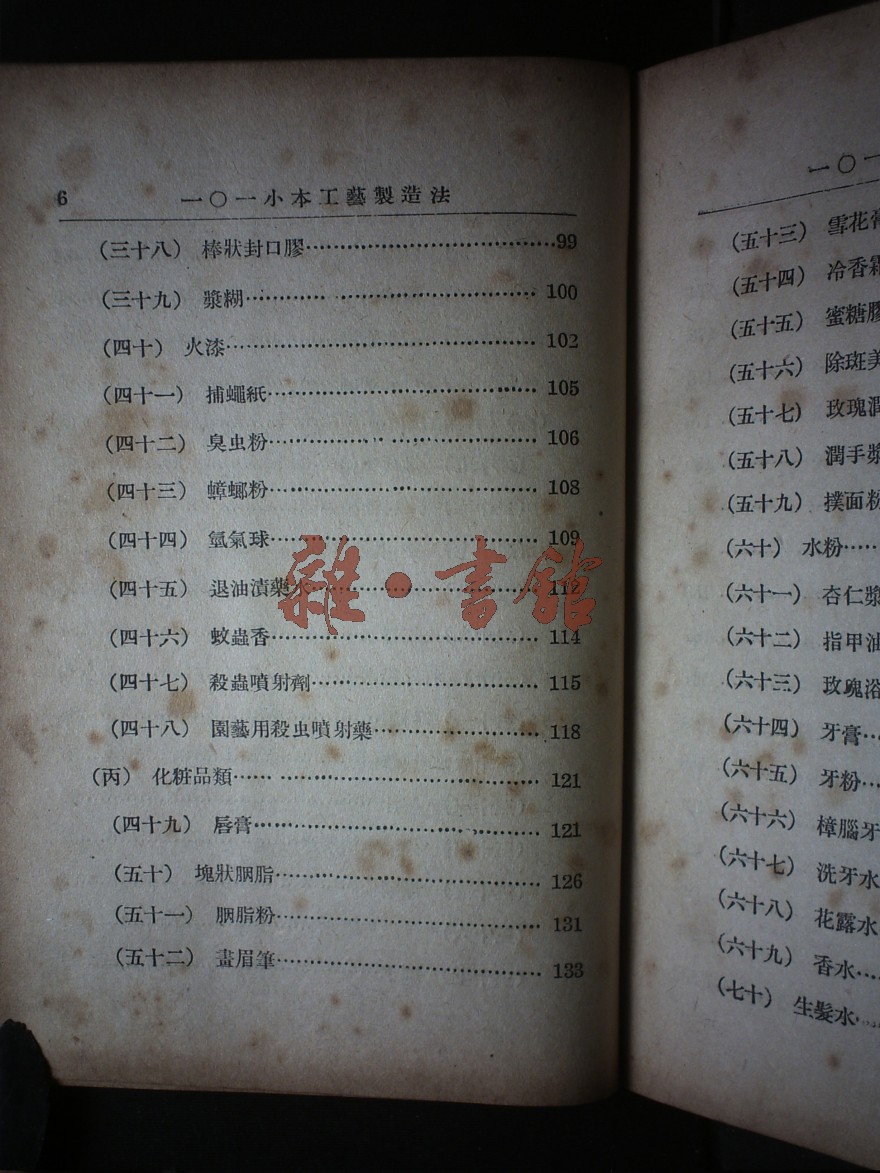 6 一〇一小本工藝製造法
(三十八) 棒狀封口膠 99
(三十九) 漿糊 100
(四十) 火漆 102
(四十一) 捕蠅紙 105
(四十二) 臭虫粉 106
(四十三) 蟑螂粉 108
(四十四) 氫氣球 109
(四十五) 退油漬藥水 112
(四十六) 蚊蟲香 114
(四十七) 殺蟲噴射劑 115
(四十八) 園藝用殺虫噴射藥 118
(丙) 化粧品類 121
(四十九) 唇膏 121
(五十) 塊狀胭脂 126
(五十一) 胭脂粉 131
(五十二) 畫眉筆 133
雜·書館
一〇一
(五十三) 雪花膏
(五十四) 冷香霜
(五十五) 蜜糖膠
(五十六) 除斑美
(五十七) 玫瑰潤
(五十八) 潤手漿
(五十九) 撲面粉
(六十) 水粉
(六十一) 杏仁漿
(六十二) 指甲油
(六十三) 玫瑰浴
(六十四) 牙膏
(六十五) 牙粉
(六十六) 樟腦牙
(六十七) 洗牙水
(六十八) 花露水
(六十九) 香水
(七十) 生髮水